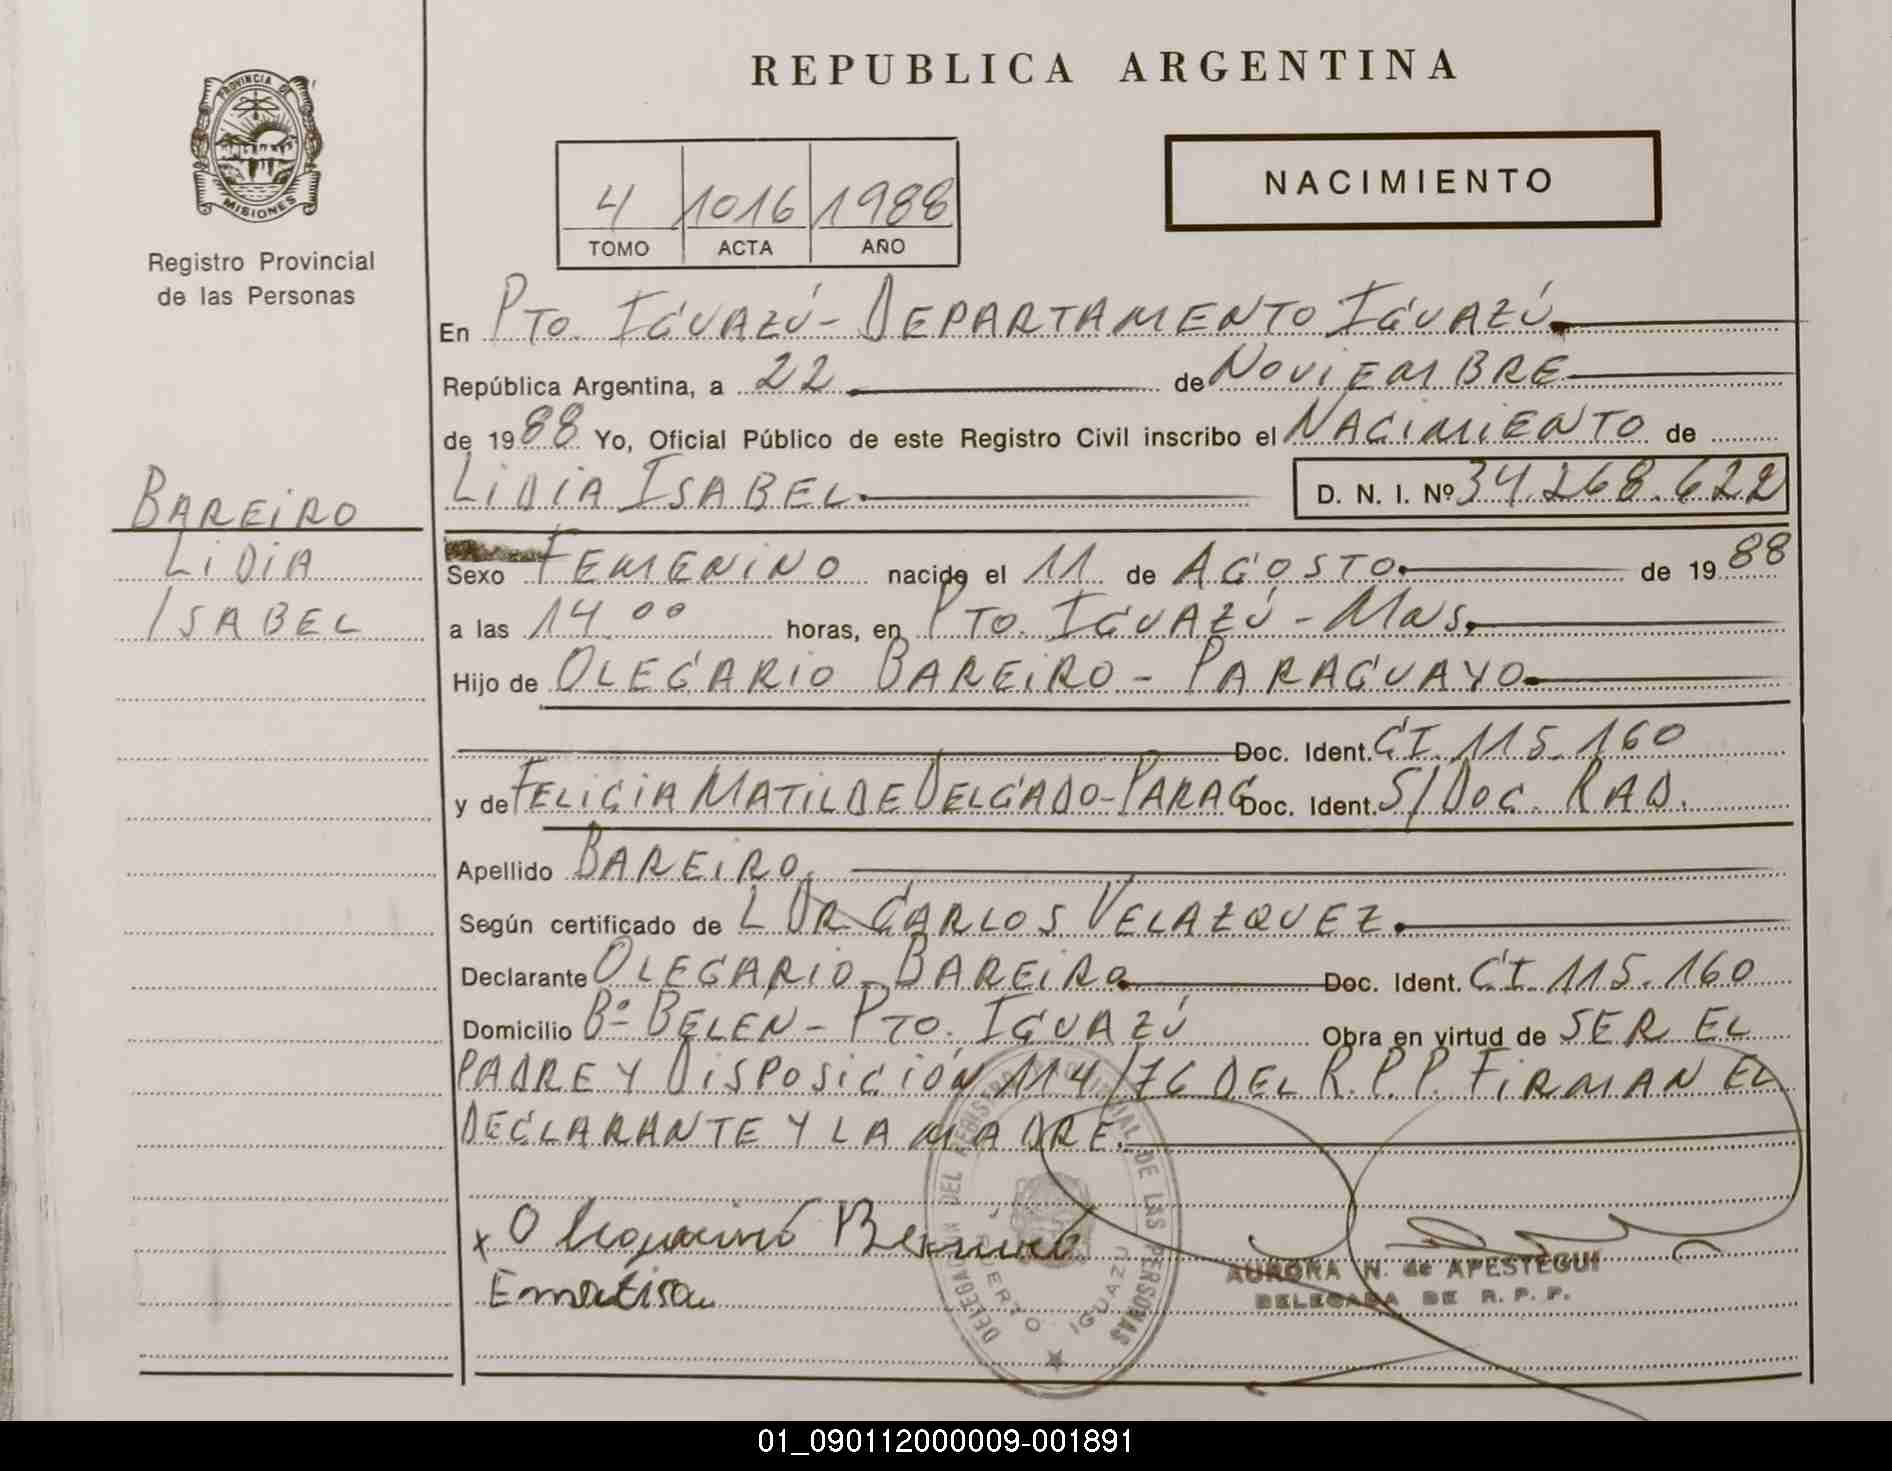 REPUBLICA ARGENTINA
PROVINCIA DE
MISIONES
Registro Provincial
de las Personas
4 1016 1988
TOMO ACTA AÑO
NACIMIENTO
En PTO. IGUAZÚ - DEPARTAMENTO IGUAZÚ
República Argentina, a 22 de NOVIEMBRE
de 1988 Yo, Oficial Público de este Registro Civil inscribo el NACIMIENTO de
LIDIA ISABEL D. N. I. Nº 34.268.622
BAREIRO
LIDIA
ISABEL
Sexo FEMENINO nacido el 11 de AGOSTO de 1988
a las 14.00 horas, en PTO. IGUAZÚ - MNS.
Hijo de OLEGARIO BAREIRO - PARAGUAYO
Doc. Ident. CI. 115.160
y de FELICIA MATILDE DELGADO - PARAG Doc. Ident. S/DOC. RAD.
Apellido BAREIRO
Según certificado de L DR CARLOS VELAZQUEZ
Declarante OLEGARIO BAREIRO Doc. Ident. CI. 115.160
Domicilio Bº BELEN - PTO. IGUAZÚ Obra en virtud de SER EL
PADRE Y DISPOSICIÓN 114/76 DEL R.P.P. FIRMAN EL
DECLARANTE Y LA MADRE.
DELEGACION DEL REGISTRO PROVINCIAL DE LAS PERSONAS
PUERTO IGUAZU
x
AURORA N. de APESTEGUI
DELEGADA DE R. P. P.
01_090112000009-001891